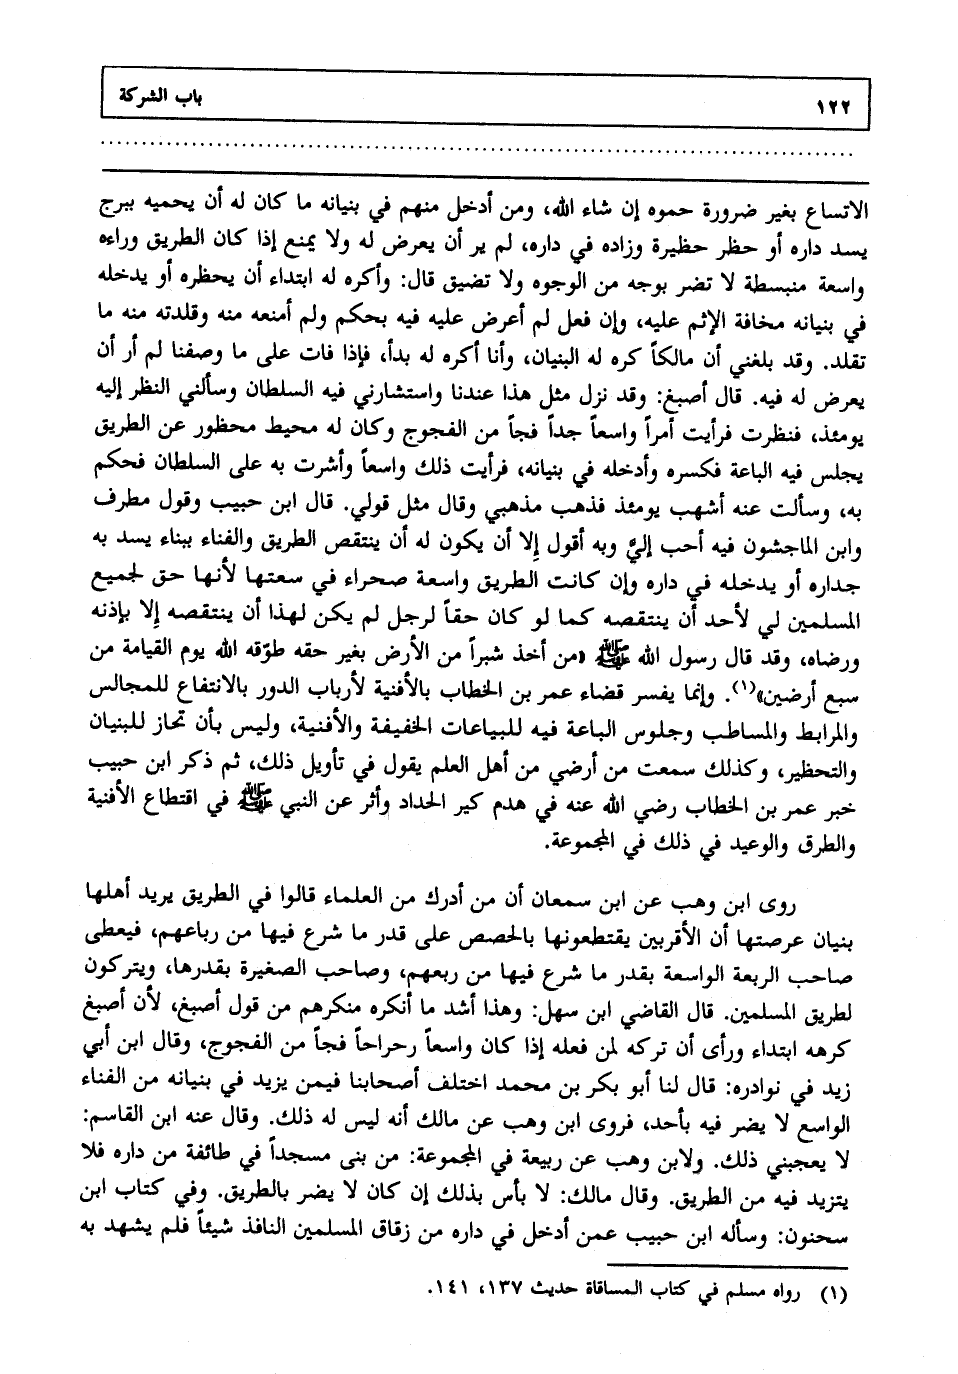 ١٢٢ باب الشركة
الاتساع بغير ضرورة حموه إن شاء الله، ومن أدخل منهم في بنيانه ما كان له أن يحميه ببرج
يسد داره أو حظر حظيرة وزاده في داره، لم ير أن يعرض له ولا يمنع إذا كان الطريق وراءه
واسعة منبسطة لا تضر بوجه من الوجوه ولا تضيق قال: وأكره له ابتداء أن يحظره أو يدخله
في بنيانه مخافة الإثم عليه، وإن فعل لم أعرض عليه فيه بحكم ولم أمنعه منه وقلدته منه ما
تقلد. وقد بلغني أن مالكاً كره له البنيان، وأنا أكره له بدأ، فإذا فات على ما وصفنا لم أر أن
يعرض له فيه. قال أصبغ: وقد نزل مثل هذا عندنا واستشارني فيه السلطان وسألني النظر إليه
يومئذ، فنظرت فرأيت أمراً واسعاً جداً فجاً من الفجوج وكان له محيط محظور عن الطريق
يجلس فيه الباعة فكسره وأدخله في بنيانه، فرأيت ذلك واسعاً وأشرت به على السلطان فحكم
به، وسألت عنه أشهب يومئذ فذهب مذهبي وقال مثل قولي. قال ابن حبيب وقول مطرف
وابن الماجشون فيه أحب إليَّ وبه أقول إلا أن يكون له أن ينتقص الطريق والفناء ببناء يسد به
جداره أو يدخله في داره وإن كانت الطريق واسعة صحراء في سعتها لأنها حق لجميع
المسلمين لي لأحد أن ينتقصه كما لو كان حقاً لرجل لم يكن لهذا أن ينتقصه إلا بإذنه
ورضاه، وقد قال رسول الله ﷺ «من أخذ شبراً من الأرض بغير حقه طوّقه الله يوم القيامة من
سبع أرضين»(١). وإنما يفسر قضاء عمر بن الخطاب بالأفنية لأرباب الدور بالانتفاع للمجالس
والمرابط والمساطب وجلوس الباعة فيه للبياعات الخفيفة والأفنية، وليس بأن تحاز للبنيان
والتحظير، وكذلك سمعت من أرضي من أهل العلم يقول في تأويل ذلك، ثم ذكر ابن حبيب
خبر عمر بن الخطاب رضي الله عنه في هدم كير الحداد وأثر عن النبي ﷺ في اقتطاع الأفنية
والطرق والوعيد في ذلك في المجموعة.
روى ابن وهب عن ابن سمعان أن من أدرك من العلماء قالوا في الطريق يريد أهلها
بنيان عرصتها أن الأقربين يقتطعونها بالحصص على قدر ما شرع فيها من رباعهم، فيعطى
صاحب الربعة الواسعة بقدر ما شرع فيها من ربعهم، وصاحب الصغيرة بقدرها، ويتركون
لطريق المسلمين. قال القاضي ابن سهل: وهذا أشد ما أنكره منكرهم من قول أصبغ، لأن أصبغ
كرهه ابتداء ورأى أن تركه لمن فعله إذا كان واسعاً رحراحاً فجاً من الفجوج، وقال ابن أبي
زيد في نوادره: قال لنا أبو بكر بن محمد اختلف أصحابنا فيمن يزيد في بنيانه من الفناء
الواسع لا يضر فيه بأحد، فروى ابن وهب عن مالك أنه ليس له ذلك. وقال عنه ابن القاسم:
لا يعجبني ذلك. ولابن وهب عن ربيعة في المجموعة: من بنى مسجداً في طائفة من داره فلا
يتزيد فيه من الطريق. وقال مالك: لا بأس بذلك إن كان لا يضر بالطريق. وفي كتاب ابن
سحنون: وسأله ابن حبيب عمن أدخل في داره من زقاق المسلمين النافذ شيئاً فلم يشهد به
(١) رواه مسلم في كتاب المساقاة حديث ١٣٧، ١٤١.